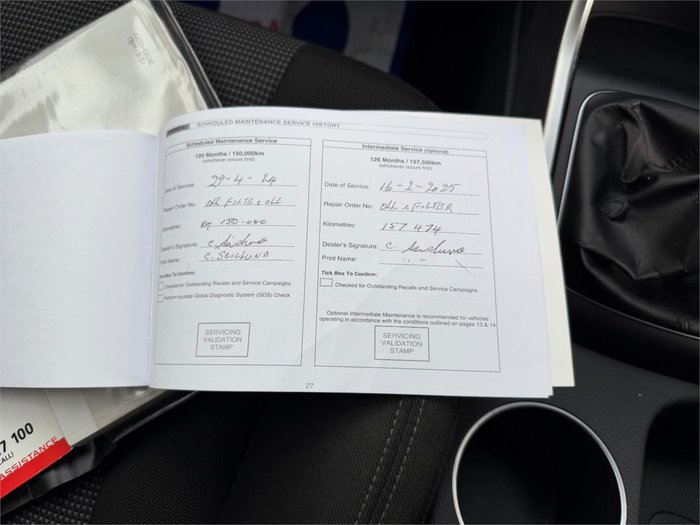 SCHEDULED MAINTENANCE SERVICE HISTORY
Scheduled Maintenance Service
120 Months / 150,000km
(whichever occurs first)
Date of Service: 29-4-24
Repair Order No: OIL FILTER OIL
Kilometres: Kg 150-000
Dealer's Signature:
Print Name:
Tick Box To Confirm:
Checked for Outstanding Recalls and Service Campaigns
Perform Hyundai Global Diagnostic System (GDS) Check
SERVICING
VALIDATION
STAMP
Intermediate Service (Optional)
126 Months / 157,500km
(whichever occurs first)
Date of Service: 16-2-2025
Repair Order No: OIL & FILTER
Kilometres: 157 474
Dealer's Signature: C.
Print Name: " "
Tick Box To Confirm:
Checked for Outstanding Recalls and Service Campaigns
Optional Intermediate Maintenance is recommended for vehicles
operating in accordance with the conditions outlined on pages 13 & 14
SERVICING
VALIDATION
STAMP
27
7 100
CALL)
ASSISTANCE